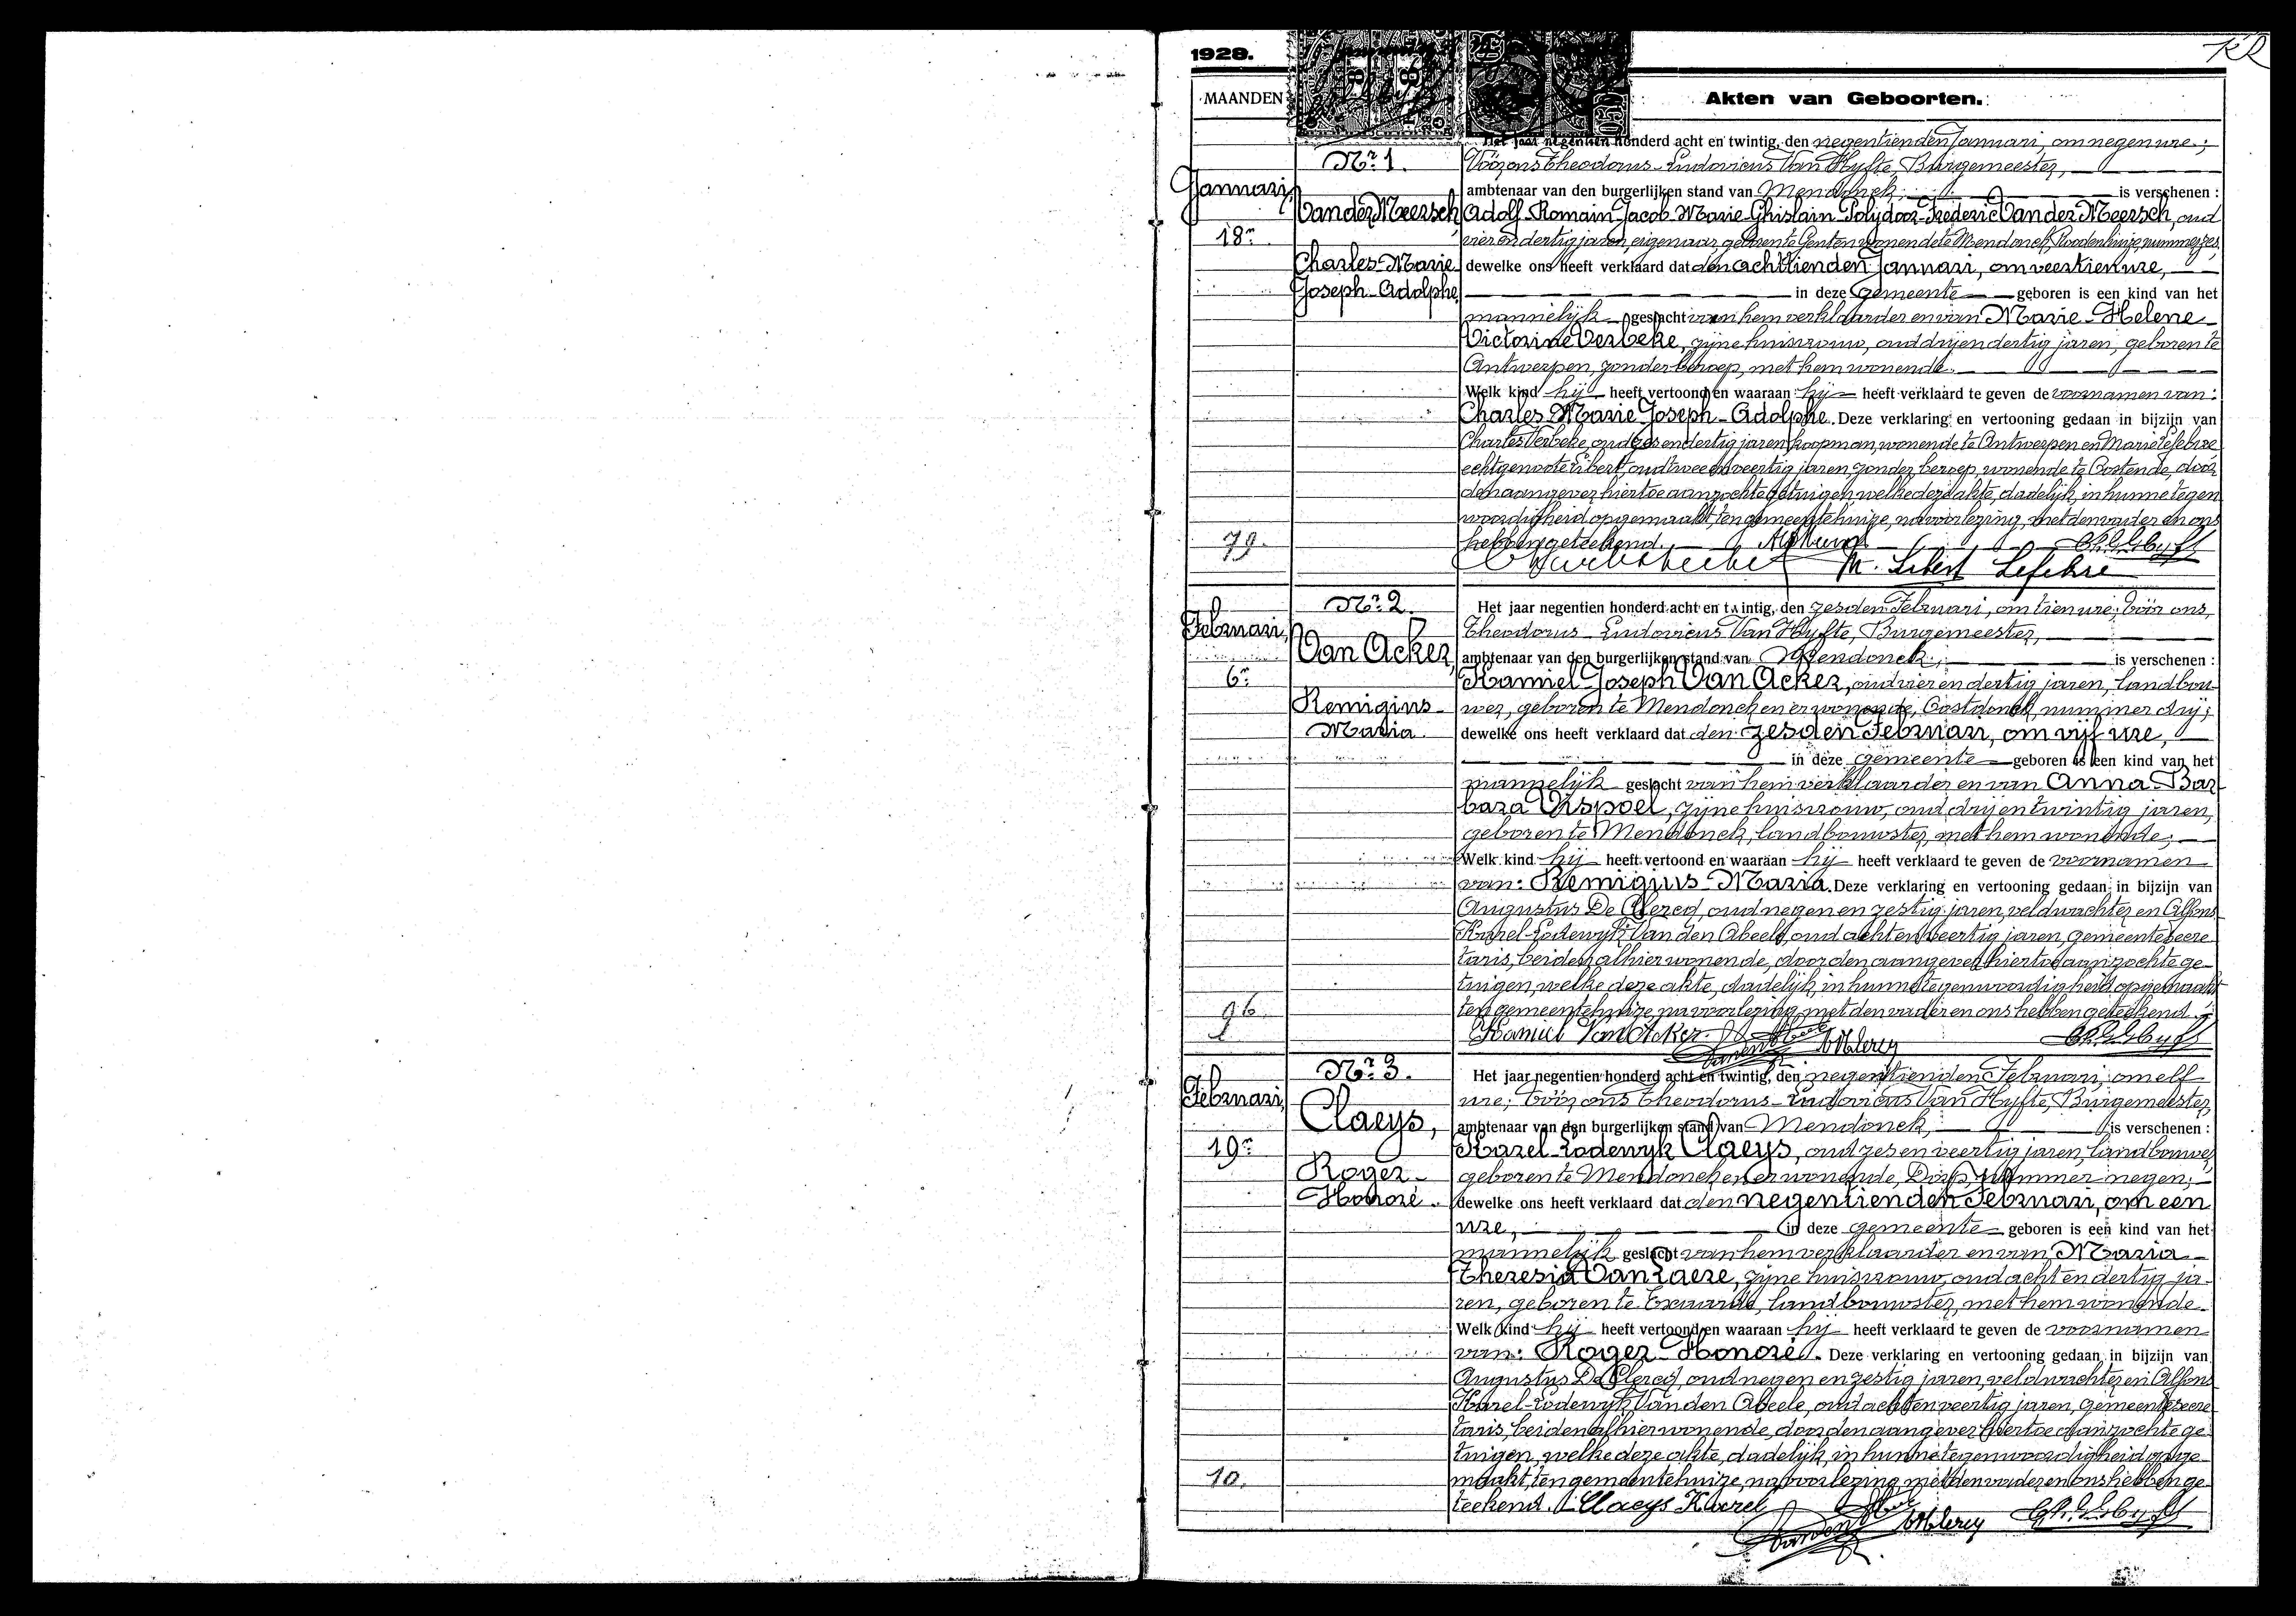 1928.
MAANDEN
Akten van Geboorten.
Nr. 1.
Januari,
18n
Van der Meersch,
Charles-Marie
Joseph-Adolphe
79.
Het jaar negentien honderd acht en twintig, den negentienden Januari, om negen ure;
Vóór ons Theodorus-Ludovicus Van Hyfte, Burgemeester,
ambtenaar van den burgerlijken stand van Mendonck, is verschenen :
Adolf-Romain-Jacob-Marie-Ghislain-Polydoor-Frederic Van der Meersch, oud
vier en dertig jaren, eigenaar, geboren te Gent en wonende te Mendonck, Roodenhuize, nummer zes,
dewelke ons heeft verklaard dat den achttienden Januari, om veertien ure,
in deze gemeente geboren is een kind van het
mannelijk geslacht van hem verklaarder en van Marie-Helene-
Victorine Verbeke, zijne huisvrouw, oud drij en dertig jaren, geboren te
Antwerpen, zonder beroep, met hem wonende.
Welk kind hij heeft vertoond en waaraan hij heeft verklaard te geven de voornamen van:
Charles-Marie-Joseph-Adolphe. Deze verklaring en vertooning gedaan in bijzijn van
Charles Verbeke, oud zes en dertig jaren, koopman, wonende te Antwerpen en Marie Lefebvre
echtgenoote Libert, oud twee en veertig jaren, zonder beroep, wonende te Oostende, door
den aangever hiertoe aanzochte getuigen, welke deze akte, dadelijk, in hunne tegen
woordigheid opgemaakt, ten gemeentehuize, na voorlezing, met den vader en ons
hebben geteekend.
M. Libert Lefebvre
Nr. 2.
Februari,
6n
Van Acker,
Remigius-
Maria.
96
Het jaar negentien honderd acht en twintig, den zesden Februari, om tien ure; vóór ons,
Theodorus-Ludovicus Van Hyfte, Burgemeester,
ambtenaar van den burgerlijken stand van Mendonck, is verschenen :
Kamiel-Joseph Van Acker, oud vier en dertig jaren, landbou-
wer, geboren te Mendonck en er wonende, Oostdonck, nummer drij;
dewelke ons heeft verklaard dat den zesden Februari, om vijf ure,
in deze gemeente geboren is een kind van het
mannelijk geslacht van hem verklaarder en van Anna-Bar-
bara Vispoel, zijne huisvrouw, oud drij en twintig jaren,
geboren te Mendonck, landbouwster, met hem wonende;
Welk kind hij heeft vertoond en waaraan hij heeft verklaard te geven de voornamen
van: Remigius-Maria. Deze verklaring en vertooning gedaan in bijzijn van
Augustus De Clercq, oud negen en zestig jaren, veldwachter en Alfons
Karel-Lodewijk Van den Abeele, oud acht en veertig jaren, gemeentesecre
taris, beiden alhier wonende, door den aangever hiertoe aanzochte ge-
tuigen, welke deze akte, dadelijk, in hunne tegenwoordigheid opgemaakt
ten gemeentehuize, na voorlezing, met den vader en ons hebben geteekend.
Kamiel Van Acker
Nr. 3.
Februari,
19n
Claeys,
Roger-
Honoré.
10.
Het jaar negentien honderd acht en twintig, den negentienden Februari, om elf
ure; vóór ons Theodorus-Ludovicus Van Hyfte, Burgemeester,
ambtenaar van den burgerlijken stand van Mendonck, is verschenen :
Karel-Lodewyk Claeys, oud zes en veertig jaren, landbouwer,
geboren te Mendonck en er wonende, Dorp, nummer negen;
dewelke ons heeft verklaard dat den negentienden Februari, om een
ure, in deze gemeente geboren is een kind van het
mannelijk geslacht van hem verklaarder en van Maria
Theresia Van Laere, zijne huisvrouw, oud acht en dertig ja-
ren, geboren te Exaarde, landbouwster, met hem wonende
Welk kind hij heeft vertoond en waaraan hij heeft verklaard te geven de voornamen
van: Roger-Honoré. Deze verklaring en vertooning gedaan in bijzijn van
Augustus De Clercq, oud negen en zestig jaren, veldwachter en Alfons
Karel-Lodewyk Van den Abeele, oud acht en veertig jaren, gemeentesecre
taris, beiden alhier wonende, door den aangever hiertoe aanzochte ge-
tuigen, welke deze akte, dadelijk, in hunne tegenwoordigheid opge-
maakt, ten gemeentehuize, na voorlezing, met den vader en ons hebben ge-
teekend. Claeys Karel